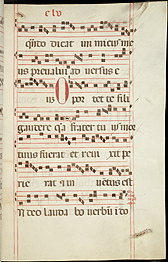 clv
quando dicat inimicus me
us prevalui adversus e
um Opor tet te fili
gaudere qia frater tuus mor
tuus fuerat et revi xit pe
rie rat et in ventus est
In deo lauda bo verbum i deo